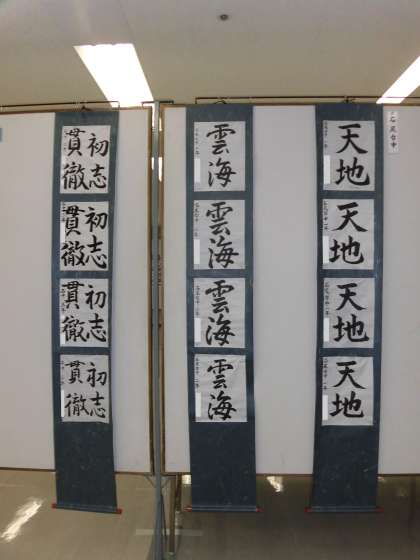 石尾台中
天地
天地
天地
天地
雲海
雲海
雲海
雲海
初志
貫徹
初志
貫徹
初志
貫徹
初志
貫徹